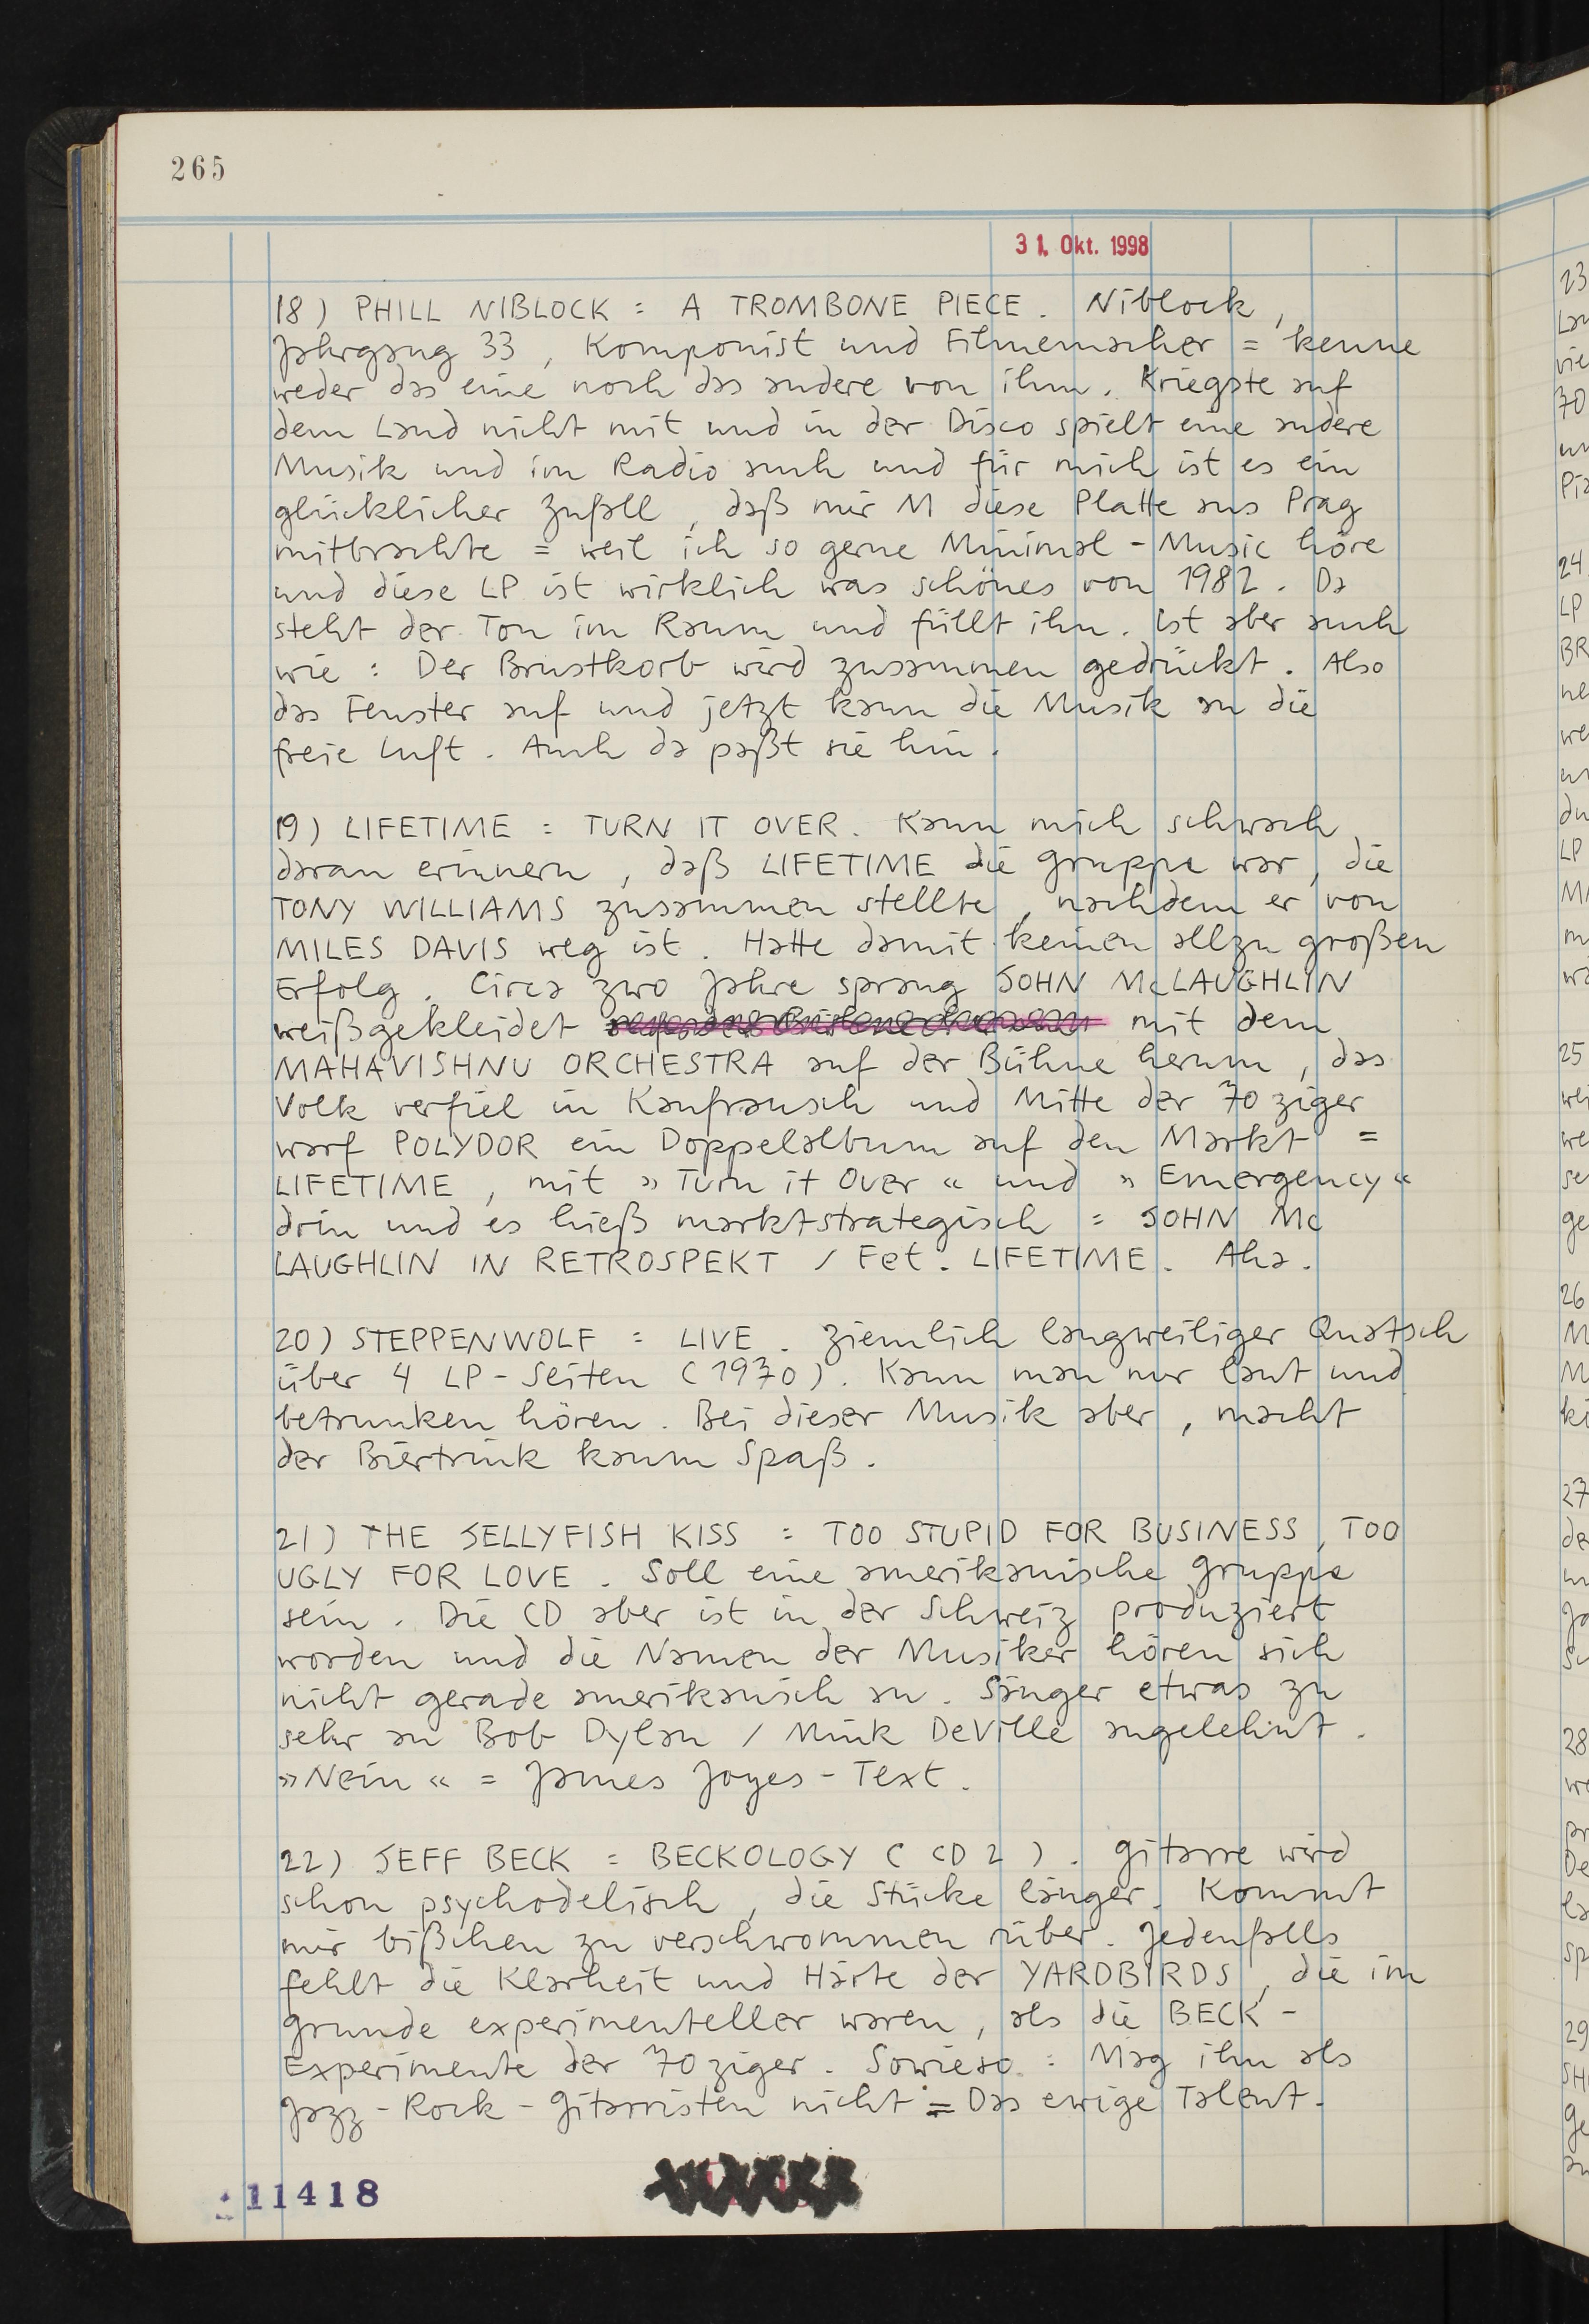 265
31. Okt. 1998
18) PHILL NIBLOCK = A TROMBONE PIECE. Niblock,
Jahrgang 33, Komponist und Filmemacher = kenne
weder das eine noch das andere von ihm. Kriegste auf
dem Land nicht mit und in der Disco spielt eine andere
Musik und im Radio auch und für mich ist es ein
glücklicher Zufall, daß mir M diese Platte aus Prag
mitbrachte = weil ich so gerne Minimal-Music höre
und diese LP ist wirklich was schönes von 1982. Da
steht der Ton im Raum und füllt ihn. Ist aber auch
wie : Der Brustkorb wird zusammen gedrückt. Also
das Fenster auf und jetzt kann die Musik an die
freie Luft. Auch da paßt sie hin.
19) LIFETIME = TURN IT OVER. Kann mich schwach
daran erinnern, daß LIFETIME die Gruppe war, die
TONY WILLIAMS zusammen stellte, nachdem er von
MILES DAVIS weg ist. Hatte damit keinen allzu großen
Erfolg. Circa zwo Jahre sprang JOHN McLAUGHLIN
weißgekleidet mit dem
MAHAVISHNU ORCHESTRA auf der Bühne herum, das
Volk verfiel in Kaufrausch und Mitte der 70ziger
warf POLYDOR ein Doppelalbum auf den Markt =
LIFETIME, mit »Turn it Over« und »Emergency«
drin und es hieß marktstrategisch = JOHN Mc
LAUGHLIN IN RETROSPEKT / Fet. LIFETIME. Aha.
20) STEPPENWOLF = LIVE. Ziemlich langweiliger Quatsch
über 4 LP-Seiten (1970). Kann man nur laut und
betrunken hören. Bei dieser Musik aber, macht
der Biertrink kaum Spaß.
21) THE JELLYFISH KISS = TOO STUPID FOR BUSINESS, TOO
UGLY FOR LOVE. Soll eine amerikanische Gruppe
sein. Die CD aber ist in der Schweiz produziert
worden und die Namen der Musiker hören sich
nicht gerade amerikanisch an. Sänger etwas zu
sehr an Bob Dylan / Mink DeVille angelehnt.
»Nein« = James Joyes-Text.
22) JEFF BECK = BECKOLOGY (CD 2). Gitarre wird
schon psychodelisch, die Stücke länger. Kommt
mir bißchen zu verschwommen rüber. Jedenfalls
fehlt die Klarheit und Härte der YARDBIRDS, die im
Grunde experimenteller waren, als die BECK-
Experimente der 70ziger. Sowieso : Mag ihn als
Jazz-Rock-Gitarristen nicht = Das ewige Talent.
11418